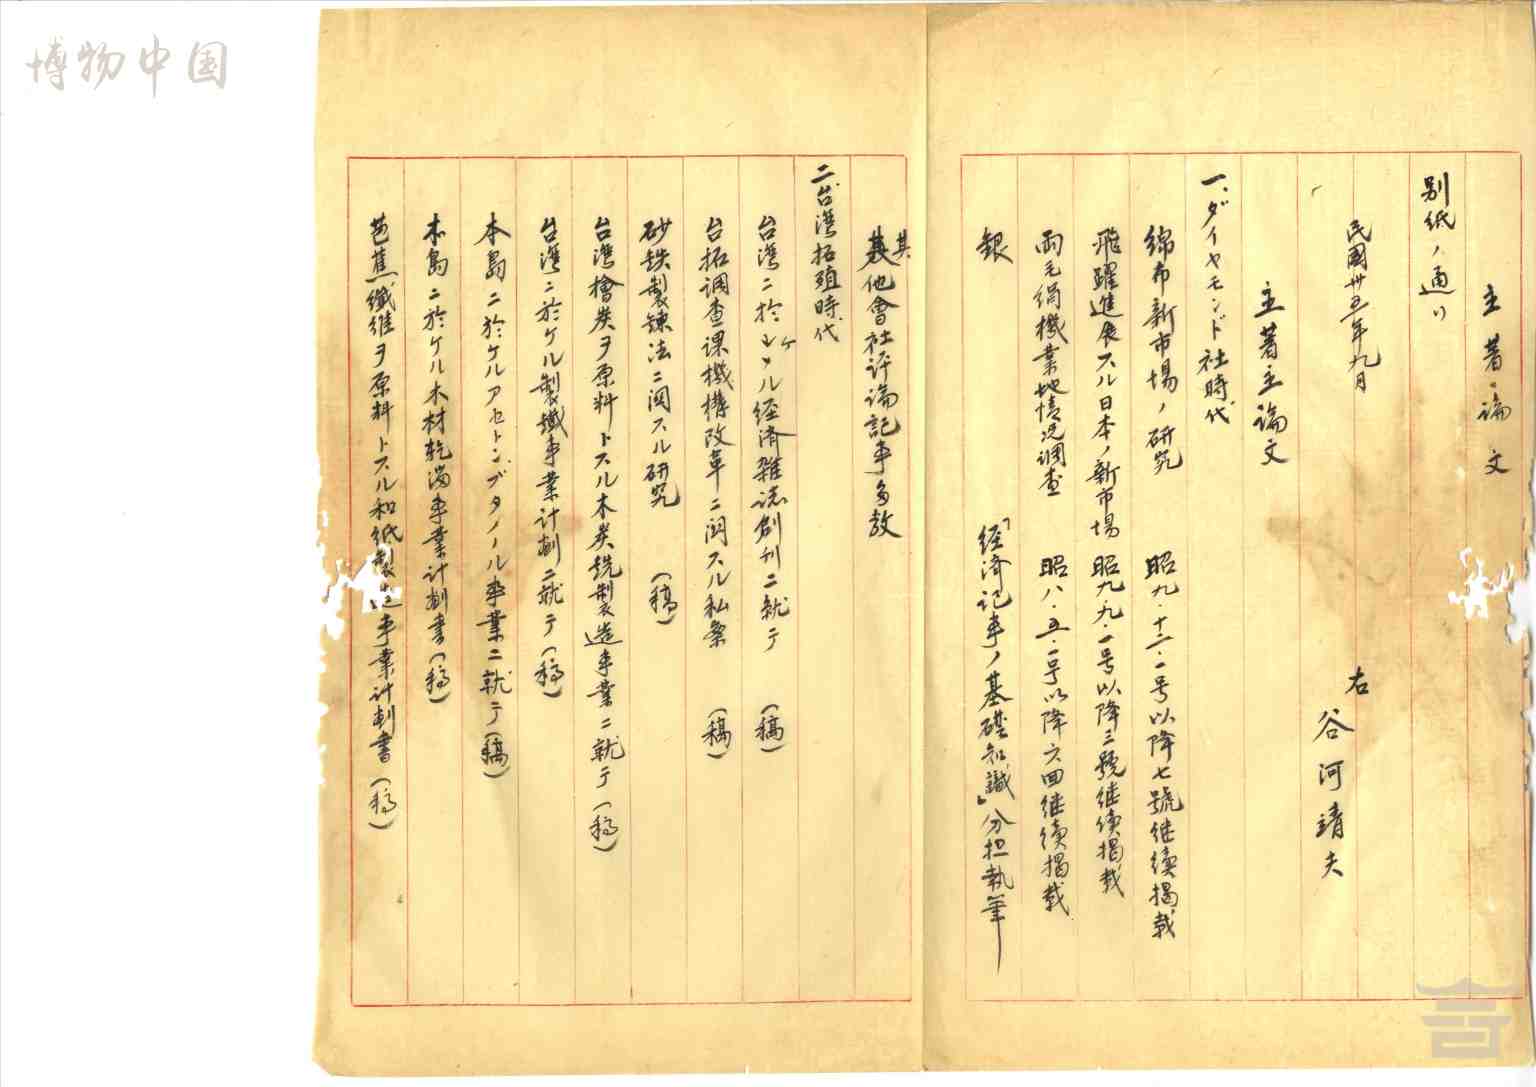 博物中国
主著論文
別紙ノ通リ
民國卅五年九月
右
谷河靖夫
主著主論文
一、ダイヤモンド社時代
綿布新市場ノ研究 昭九・十二・一号以降七號継續掲載
飛躍進展スル日本ノ新市場 昭九・九・一号以降三號継続掲載
両毛絹機業地情況調査 昭八・五・一号以降六回継続掲載
銀 「経済記事ノ基礎知識」分担執筆
其他會社評論記事多数
二、台湾拓殖時代
台湾ニ於ケル経済雑誌創刊ニ就テ (稿)
台拓調査課機構改革ニ関スル私案 (稿)
砂鉄製錬法ニ関スル研究 (稿)
台湾檜炭ヲ原料トスル木炭銑製造事業ニ就テ(稿)
台湾ニ於ケル製鐵事業計劃ニ就テ(稿)
本島ニ於ケルアセトン、ブタノール事業ニ就テ(稿)
本島ニ於ケル木材乾溜事業計劃書(稿)
芭蕉纖維ヲ原料トスル和紙製造事業計劃書(稿)